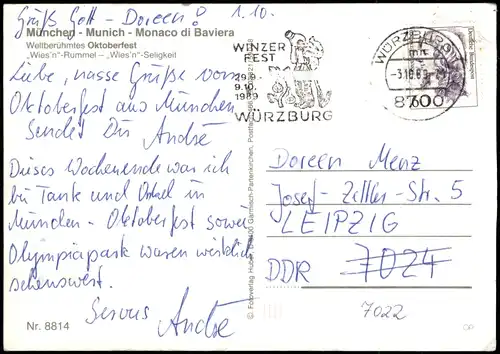 Grüß Gott - Doreen! 1.10.
München - Munich - Monaco di Baviera
Weltberühmtes Oktoberfest
„Wies'n"-Rummel – „Wies'n"-Seligkeit
Liebe, nasse Grüße vom
Oktoberfest aus München
Sendet Dir André
Dieses Wochenende war ich
bei Tante und Onkel in
München - Oktoberfest sowei
Olympiapark waren wirklich
sehenswert.
Servus André
Nr. 8814
© Fotoverlag Huber, Garmisch-Partenkirchen
WINZER
FEST
29.9.-
9.10.
1989
WÜRZBURG
WÜRZBURG
-3.10.89
8700
Doreen Menz
Josef-Zettler-Str. 5
LEIPZIG
7024
DDR
7022